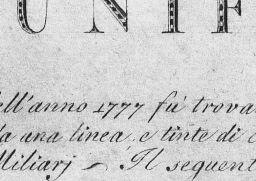 UNIF
ell'anno 1777 fù trova
la una linea, e tinte di
Miliarj ~ Il seguent